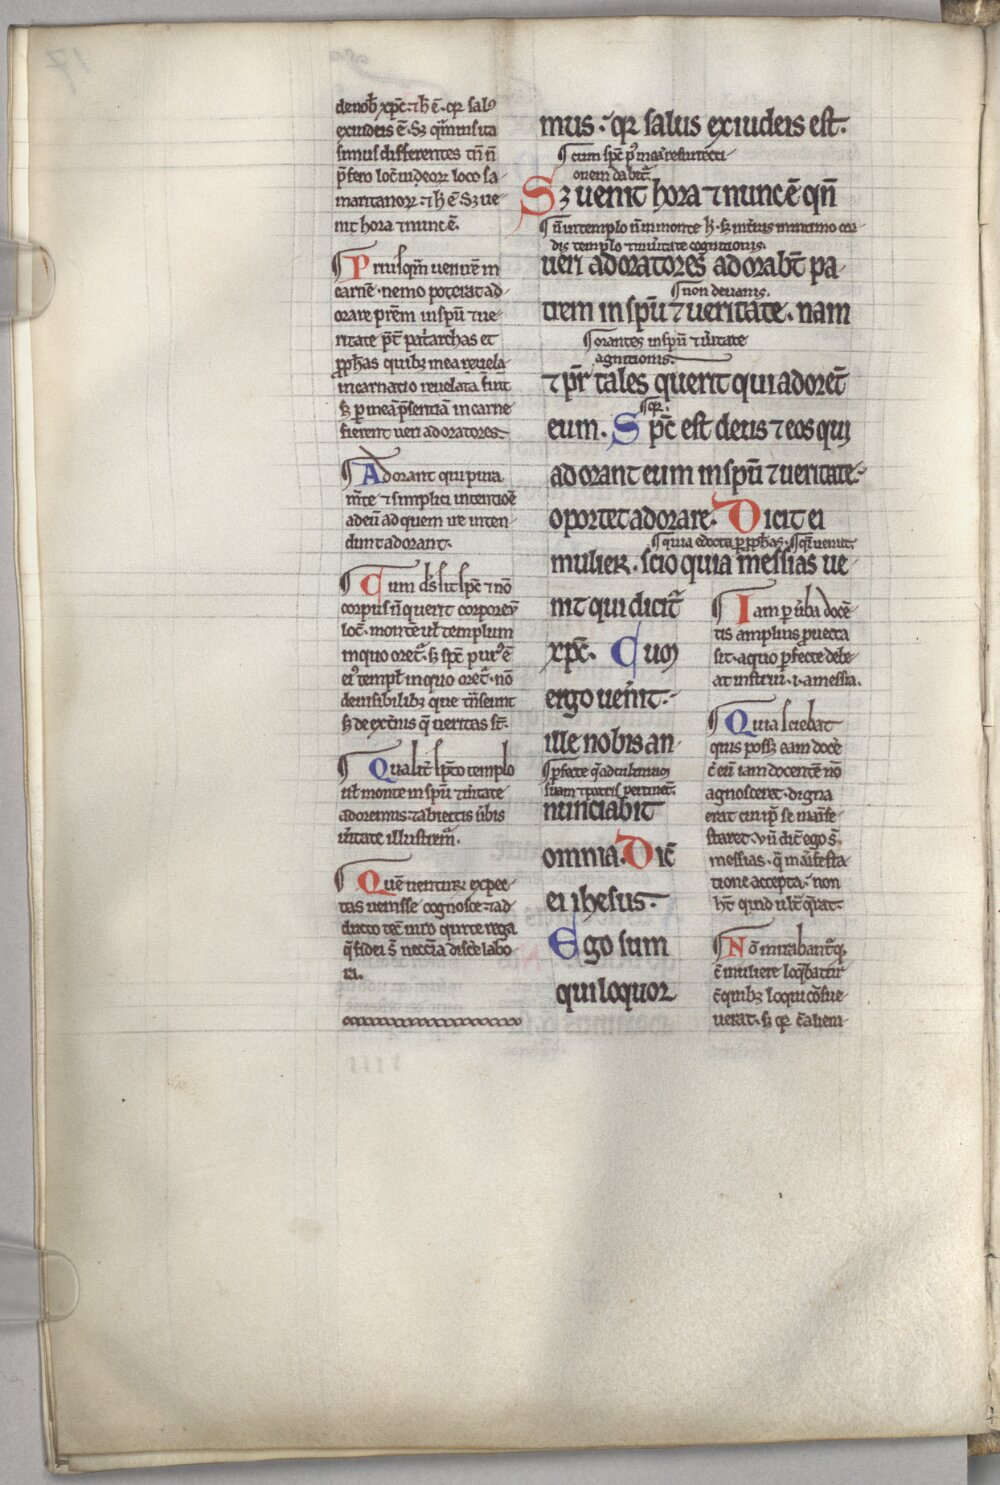 de nob̄ xp̄c. ⁊ h̄ ē. qꝛ salꝰ
ex iudeis ē. Sꝫ qm̄uis ita
simus differentes tn̄ n̄
p̄fero loc̄ iudeoꝝ loco sa-
maritanoꝝ. ⁊ h̄ ē Sꝫ ue-
nit hora ⁊ nunc ē.
¶ Priusqm̄ uenirem in
carnē. nemo poterat ad-
orare prēm in spū ⁊ ue-
ritate p̄t patarchas et
ꝓph̄as quibꝫ mea
incarnatio reuelata fuit
sꝫ ꝑ meā p̄sentiā in carne
fierent ueri adoratores.
¶ Adorant qui pura
m̄te ⁊ simplici intentiōe
a deū ad quem uere inten-
dunt adorant.
¶ Cum d̄s sit sp̄c ⁊ nō
corpus n̄ querit corporeū
loc̄. montē ul̄ templum
in quo oret̄. sꝫ sp̄c purꝰ ē
eiꝰ templ̄ in quo oret̄. nō
de uisibilibꝫ que tn̄seunt
sꝫ de et̄nis q̄ ueritas st̄.
¶ Qualit̄ spreto templo
ul̄ monte in spū ⁊ uitate
adoremus. ⁊ abiectis ūbis
uitate illustrem̄.
¶ Quē uenturū expec-
tas uenisse cognosce. ⁊ ad-
ducto tec̄ uiro qui te rega
q̄ fidei s̄ necc̄ia disce labo
ra.
mus. qꝛ salus ex iudeis est.
¶ cum sp̄c pꝰ meā resurrecti-
onem dabit̄.
Sꝫ uenit hora ⁊ nunc ē qn̄
¶ n̄ in templo n̄ in monte h̄. sꝫ in intimo cor-
dis templo ⁊ in uitate cognitionis.
ueri adoratores adorab̄t pa-
¶ non de uanis.
trem in spū ⁊ ueritate. nam
¶ orantes in spū ⁊ uitate
agnitionis.
⁊ pr̄ tales querit qui adorēt
¶ qꝛ.
eum. Sp̄c est deus ⁊ eos qui
adorant eum in spū ⁊ ueritate
oportet adorare. Dicit ei
¶ quia edocta ꝑ ꝓph̄as. ¶ qꝛ ueniet
mulier. scio quia messias ue-
nit qui dicit̄
xp̄c. Cum
ergo uenit
ille nobis an-
¶ ꝑfecte q̄ ad cultum
suum ⁊ patris pertinet.
nunciabit
omnia. Dic̄
ei ihesus.
Ego sum
qui loquor
¶ Iam ꝑ ūba docē-
tis amplius ꝓuecta
sit. a quo ꝑfecte debe-
at instrui. i. a messia.
¶ Quia sciebat
quis posset eam docē
c̄ eū iam docentē nō
agnosceret. digna
erat cui ip̄e se maife-
staret. un̄ dic̄ ego s̄
messias. q̄ maifesta
tione accepta. non
h̄t quid ult̄ q̄rat.
¶ Nō mirabant̄ qꝛ
c̄ muliere loq̄batur
c̄ quibꝫ loqui cōsue-
uerat. sꝫ qꝛ c̄ alieni-